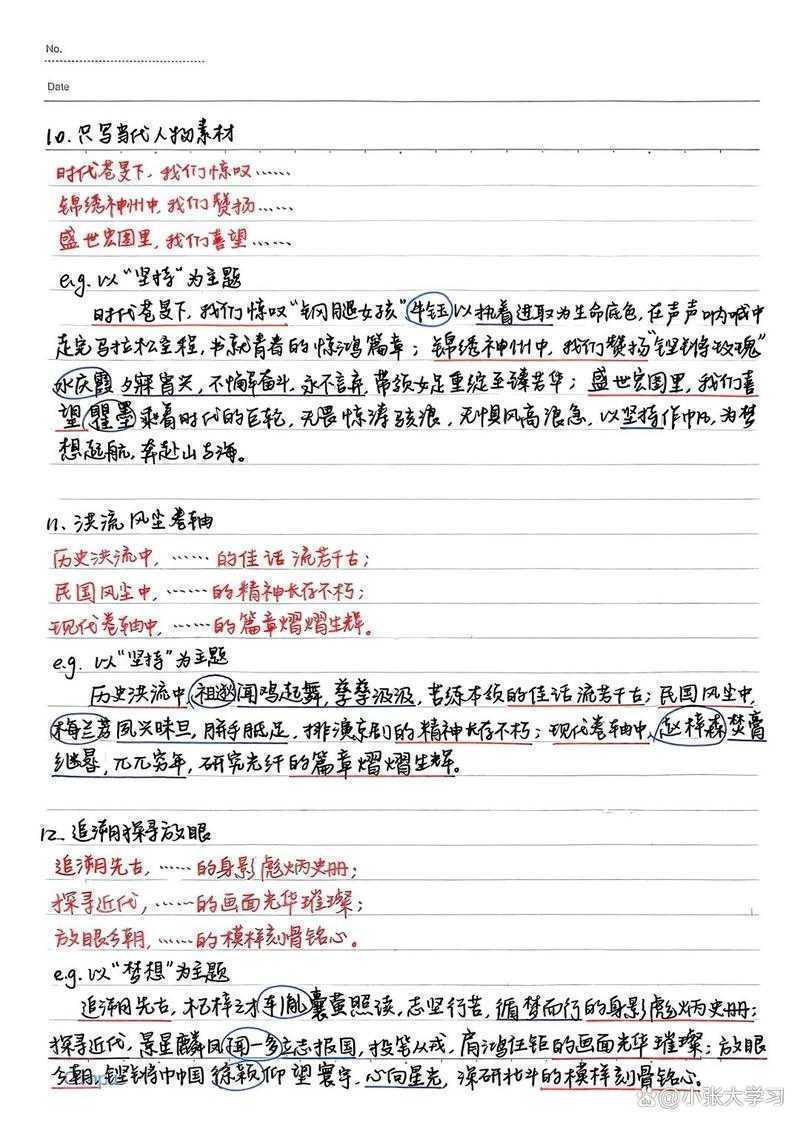 No.
Date
10. 只写当代人物素材
时代苍旻下，我们惊叹……
锦绣神州中，我们赞扬……
盛世宏图里，我们喜望……
e.g. 以“坚持”为主题
时代苍旻下，我们惊叹“钢腿女孩”牛钰以执着进取为生命底色，在声声呐喊中
走完马拉松全程，书就青春的惊鸿篇章；锦绣神州中，我们赞扬“铿锵玫瑰”
水庆霞夕寐宵兴，不懈奋斗，永不言弃，带领女足重绽至臻芳华；盛世宏图里，我们喜
望瞿墨乘着时代的巨轮，无畏惊涛骇浪，无惧风高浪急，以坚持作帆，为梦
想起航，奔赴山与海。
11. 洪流风尘卷轴
历史洪流中，……的佳话流芳千古；
民国风尘中，……的精神长存不朽；
现代卷轴中，……的篇章熠熠生辉。
e.g. 以“坚持”为主题
历史洪流中，祖逖闻鸡起舞，孳孳汲汲，苦练本领的佳话流芳千古；民国风尘中，
梅兰芳夙兴昧旦，胼手胝足，排演京剧的精神长存不朽；现代卷轴中，赵梓森焚膏
继晷，兀兀穷年，研究光纤的篇章熠熠生辉。
12. 追溯探寻放眼
追溯先古，……的身影彪炳史册；
探寻近代，……的画面光华璀璨；
放眼今朝，……的模样刻骨铭心。
e.g. 以“梦想”为主题
追溯先古，杞梓之才车胤囊萤照读，志坚行苦，循梦而行的身影彪炳史册；
探寻近代，景星麟凤闻一多立志报国，投笔从戎，肩鸿任钜的画面光华璀璨；放眼
今朝，铿锵中国徐颖仰望寰宇，心向星光，深研北斗的模样刻骨铭心。
小张大学习